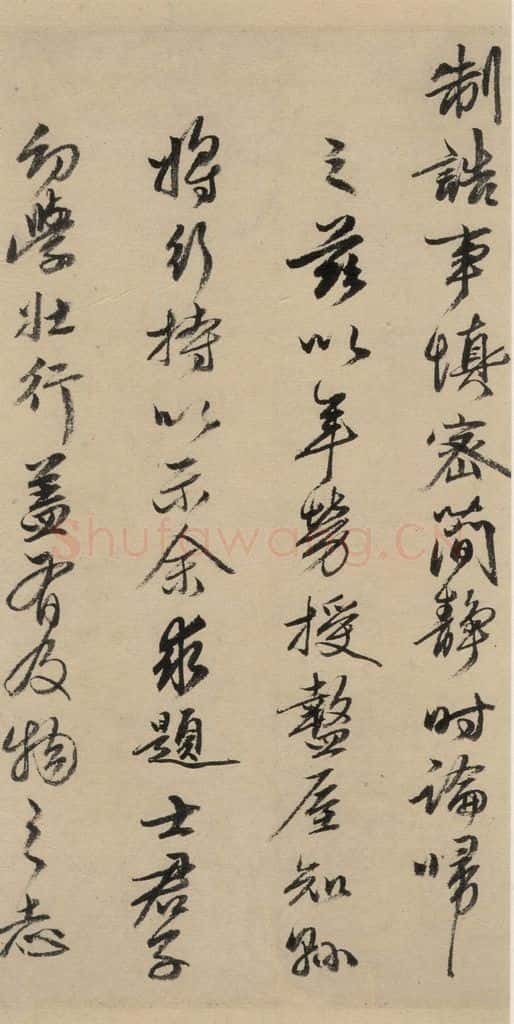 制誥事慎密簡靜時論歸
之茲以年勞授盩厔知縣
將行持以示余求題士君子
幼學壯行蓋有及物之志
Shufawang.CN